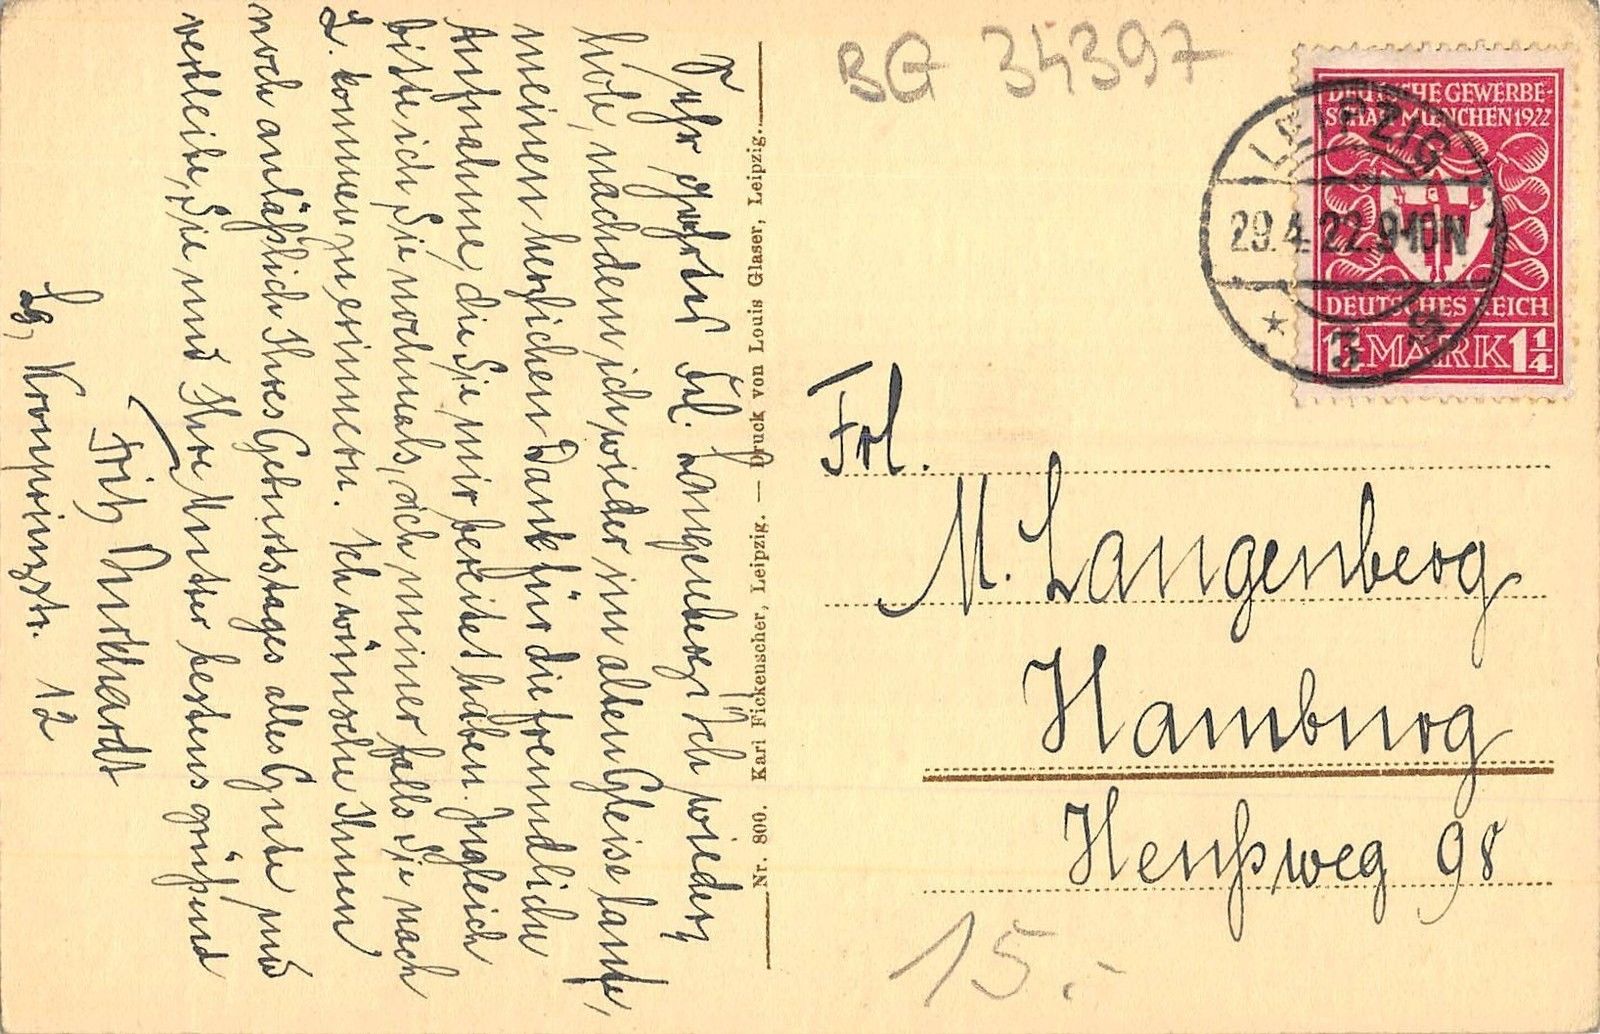 Sehr geehrtes Frl. Langenberg! Ich wieder-
hole, nachdem ich wieder im alten Gleise laufe,
meinen herzlichen Dank für die freundliche
Aufnahme, die Sie mir bereitet haben. Zugleich
bitte ich Sie nochmals, sich meiner, falls Sie nach
L. kommen, zu erinnern. Ich wünsche Ihnen
noch anläßlich Ihres Geburtstages alles Gute und
verbleibe, Sie und Ihre Mutter bestens grüßend
Fritz Burkhardt
Lg, Kronprinzstr. 12
Nr. 800. Karl Fickenscher, Leipzig. — Druck von Louis Glaser, Leipzig.
BG 34397
DEUTSCHE GEWERBE-
SCHAU MUENCHEN 1922
DEUTSCHES REICH
1¼ MARK 1¼
LEIPZIG
29.4.22.9-10N
* 3
Frl.
M. Langenberg
Hamburg
Henßweg 98
15.-